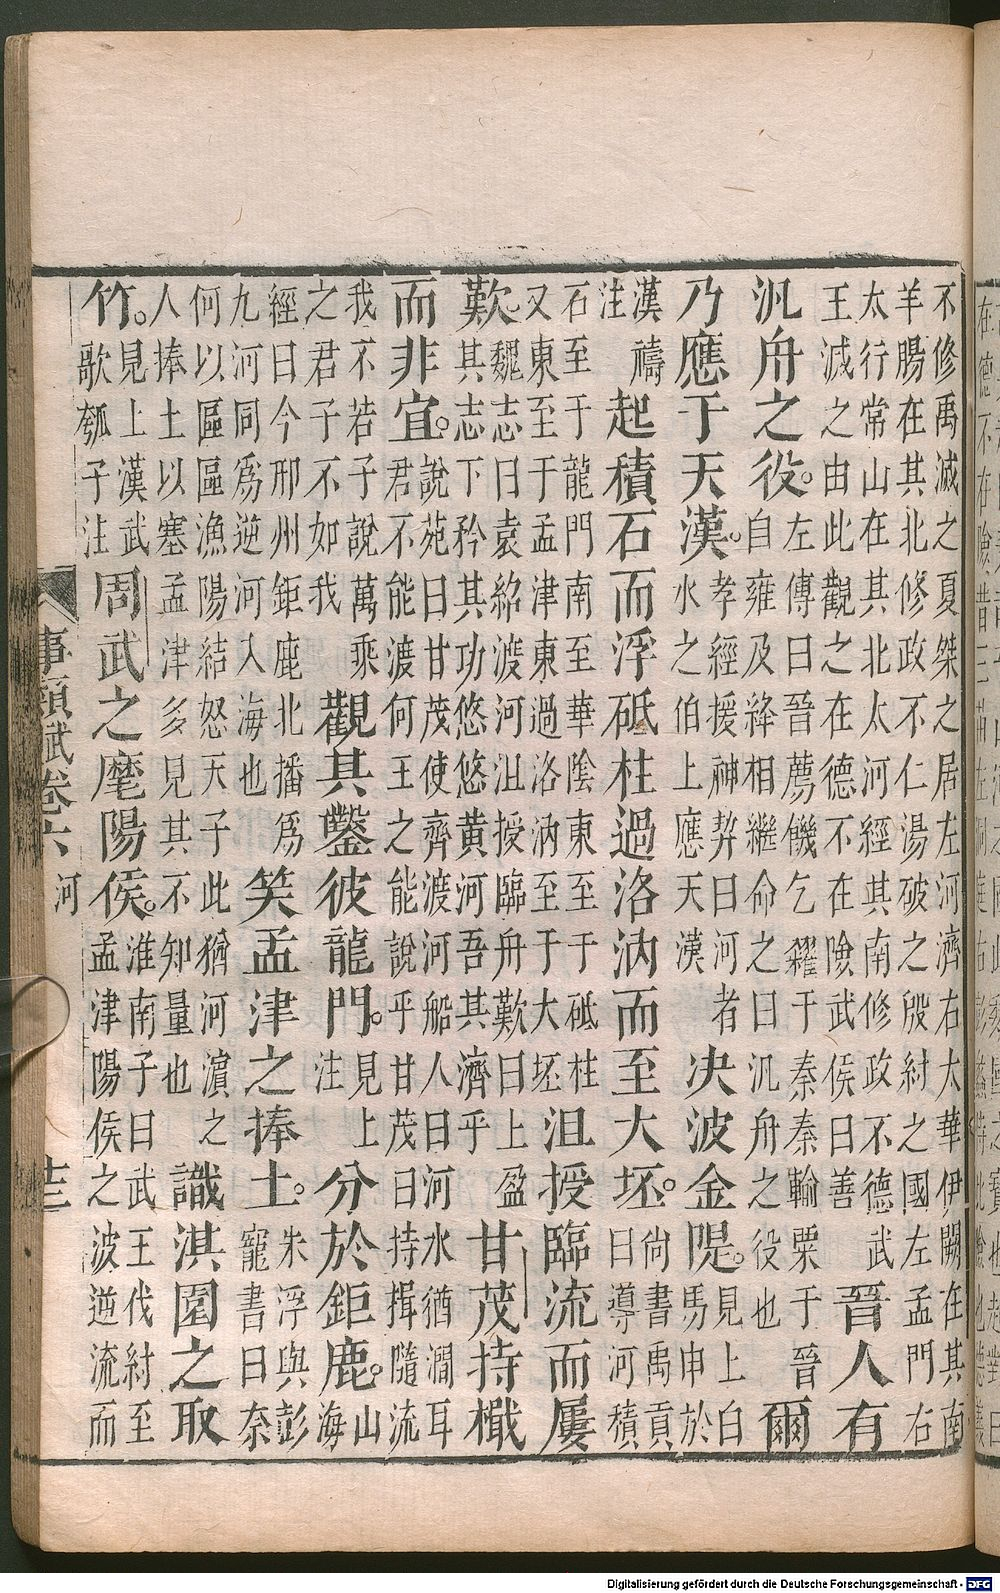 不修禹滅之夏桀之居左河濟右太華伊闕在其南
羊腸在其北修政不仁湯破之殷紂之國左孟門右
太行常山在其北太河經其南修政不德武
王滅之由此觀之在德不在險武侯曰善
晉人有
汎舟之役。
左傳曰晉薦饑乞糴于秦秦輸粟于晉
自雍及絳相繼命之曰汎舟之役也
爾
乃應于天漢。
孝經援神契曰河者
水之伯上應天漢
决波金隄。
見上白
馬申於
漢禱
注
起積石而浮砥柱過洛汭而至大坯。
尙書禹貢
曰導河積
石至于龍門南至華陰東至于砥柱
又東至于孟津東過洛汭至于大坯
沮授臨流而屢
歎。
魏志曰袁紹渡河沮授臨舟歎曰上盈
其志下矜其功悠悠黃河吾其濟乎
甘茂持檝
而非宜。
說苑曰甘茂使齊渡河船人曰河水猶澗耳
君不能渡何王之能說乎甘茂曰持揖隨流
我不若子說萬乘
之君子不如我
觀其鑿彼龍門。
見上
注
分於鉅鹿。
山
海
經曰今邢州鉅鹿北播爲
九河同爲逆河入海也
笑孟津之捧土。
朱浮與彭
寵書曰奈
何以區區漁陽結怒天子此猶河濱之
人捧土以塞孟津多見其不知量也
識淇園之取
竹。
見上漢武
歌瓠子注
周武之麾陽侯。
淮南子曰武王伐紂至
孟津陽侯之波逆流而
事類賦卷六 河
Digitalisierung gefördert durch die Deutsche Forschungsgemeinschaft - DFG